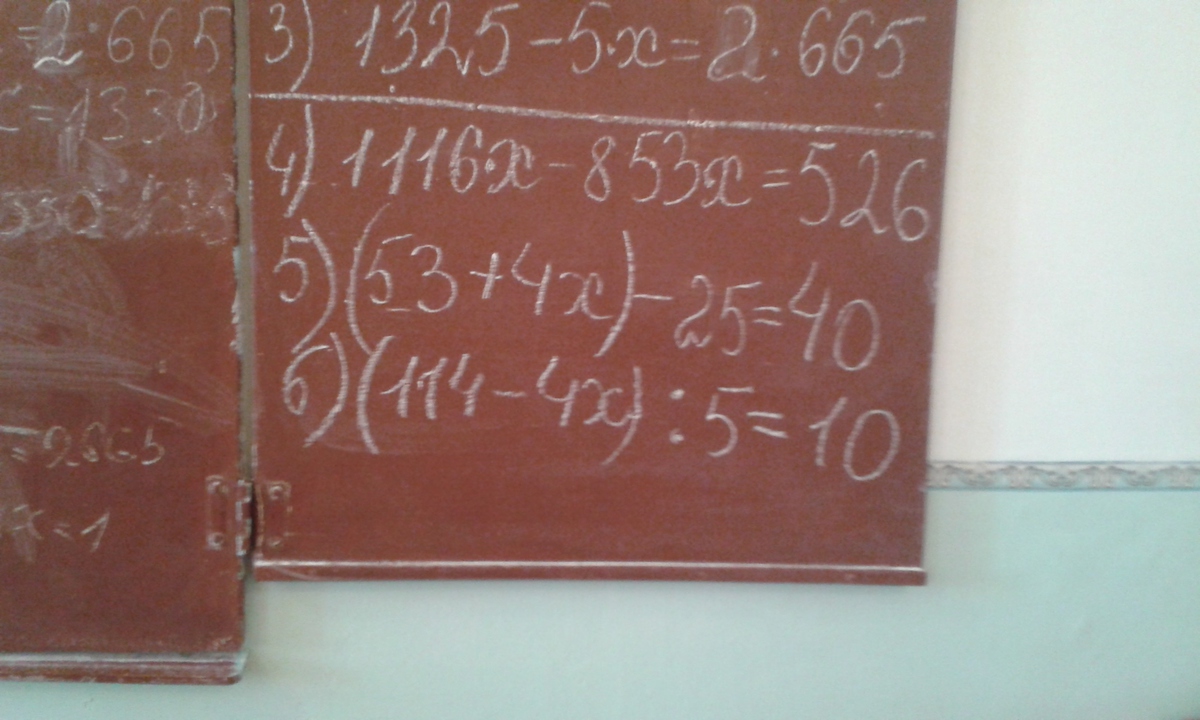 =2·665
=1330
=2865
x=1
3) 1325-5·x=2·665
4) 1116x-853x=526
5) (53+4x)-25=40
6) (114-4x):5=10